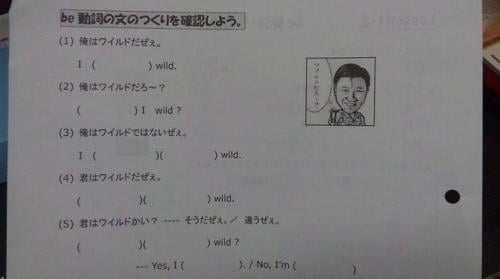 be 動詞の文のつくりを確認しよう。
(1) 俺はワイルドだぜぇ。
I ( ) wild.
(2) 俺はワイルドだろ～？
( ) I wild ?
(3) 俺はワイルドではないぜぇ。
I ( )( ) wild.
(4) 君はワイルドだぜぇ。
( )( ) wild.
(5) 君はワイルドかい？ ---- そうだぜぇ。／ 違うぜぇ。
( )( ) wild ?
--- Yes, I ( ). / No, I'm ( )
ワイルドだろ～？